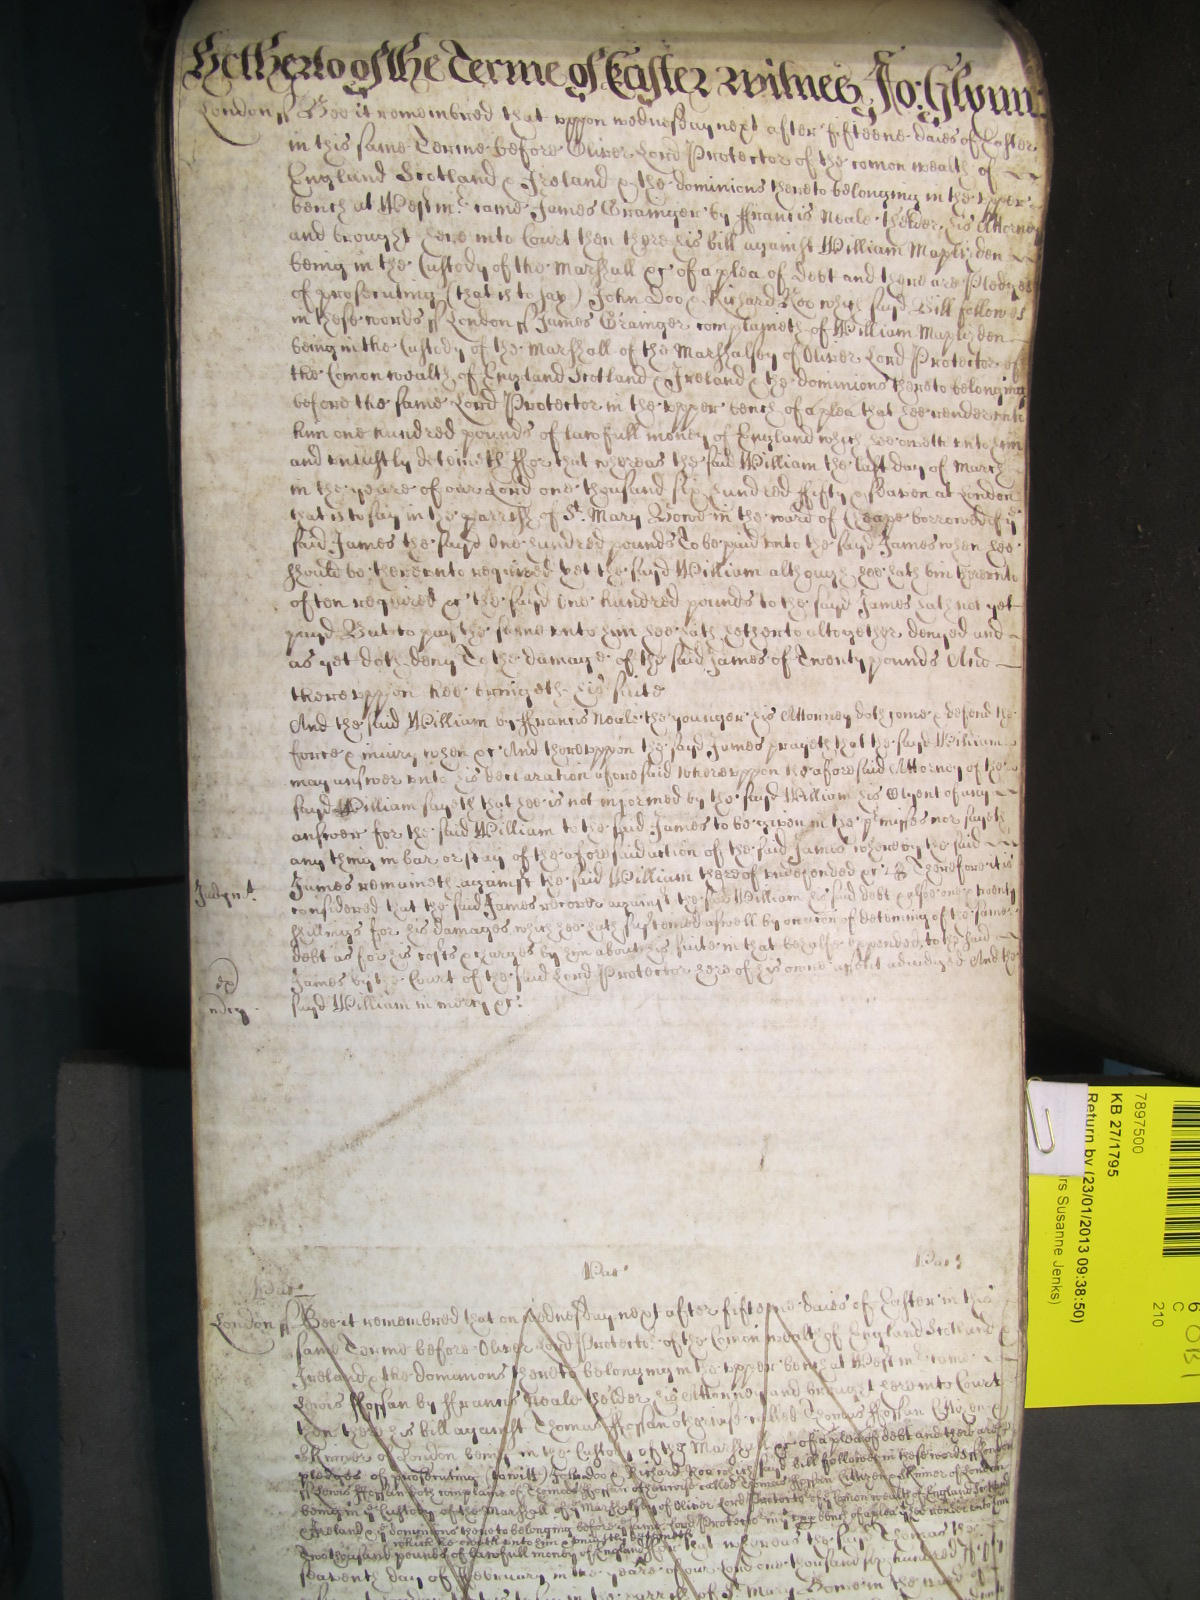 Hetherto of the Terme of Easter witnes Jo: Glynn
London ss Bee it remembred that uppon wednesday next after fifteene daies of Easter
in this same Terme before Oliver Lord Protector of the comon wealth of
England Scotland & Ireland & the dominions thereto belonging in the upper
bench at Westmr. came James Grainger by ffrancis Neale thelder his Attorney
and brought here into Court then there his bill against William Maplisden
being in the Custody of the Marshall &c of a plea of Debt and there are Pledges
of prosecuting (that is to say) John Doo & Richard Roo which sayd Bill followes
in these words ss London ss James Grainger complaineth of William Maplisden
being in the Custody of the Marshall of the Marshalsey of Oliver Lord Protector of
the Comon wealth of England Scotland & Ireland & the dominions thereto belonging
before the same Lord Protector in the upper bench of a plea that hee render unto
him one hundred pounds of lawfull money of England which hee oweth unto him
and uniustly deteineth ffor that whereas the said William the last day of March
in the yeare of our Lord one thousand six hundred ffifty & seaven at London
that is to say in the parrish of St. Mary Bowe in the ward of Cheape borrowed of ye
said James the sayd One hundred pounds To be paid unto the sayd James when hee
should be thereunto required yet the sayd William although hee hath bin thereunto
often required &c the sayd One hundred pounds to the sayd James hath not yet
payd But to pay the same unto him hee hath hetherto altogether denyed and
as yet doth deny To the damage of the said James of Twenty pounds And
thereuppon hee bringeth his suite
And the said William by ffrancis Neale the younger his Attorney doth come & defend the
force & iniury when &c And thereuppon the sayd James prayeth that the sayd William
may answer unto his declaration aforesaid whereuppon the aforesaid Attorney of the
sayd William sayeth that hee is not informed by the sayd William his Clyent of any
answer for the said William to the said James to be given in the pr misses nor sayeth
any thing in bar or stay of the aforesaid action of the said James whereby the said
Judgmt. James remaineth against the said William thereof undefended &c Therefore it is
considered that the said James recover against the said William his said debt & alsoe one & twenty
shillings for his damages which hee hath susteined aswell by occacon of deteining of the same
debt as for his costs & charges by him about his suite in that behalfe expended, to the said
James by the Court of the said Lord Protector here of his owne assent adiudged And the
mcy. said William in mercy &c.
Vac Vac Vac
London ss Bee it remembred that on Wednesday next after fifteene daies of Easter in this
same Terme before Oliver Lord Protector of the Comon wealth of England Scotland &
Ireland & the dominions thereto belonging in the upper bench at Westmr came
Lewis ffossan by ffrancis Neale thelder his Attorney and brought here into Court
then there his bill against Thomas ffossan otherwise called Thomas ffossan Cittizen &
Skinner of London being in the Custody of the Marshall &c of a plea of debt and there are
pledges of prosecuting (towitt) John Doo & Richard Roo which sayd bill followes in these words ss London
ss Lewis ffossan doth complaine of Thomas ffossan otherwise called Thomas ffossan Cittizen & Skinner of London
being in ye Custody of the Marshall of ye Marshalsey of Oliver Lord Protector of ye Comon wealth of England Scotland
& Ireland & ye dominions thereto belonging before ye same Lord Protector in ye upper bench of a plea that hee render unto him
which he oweth unto him & uniustly deteineth
Two thousand pounds of lawfull money of England ffor that whereas the sayd Thomas the
seaventh day of ffebruary in the yeare of our Lord one thousand six hundred ffifty
in the parrish of St. Mary Bowe in the ward of
7897500
KB 27/1795
Return by (23/01/2013 09:38:50)
rs Susanne Jenks)
210